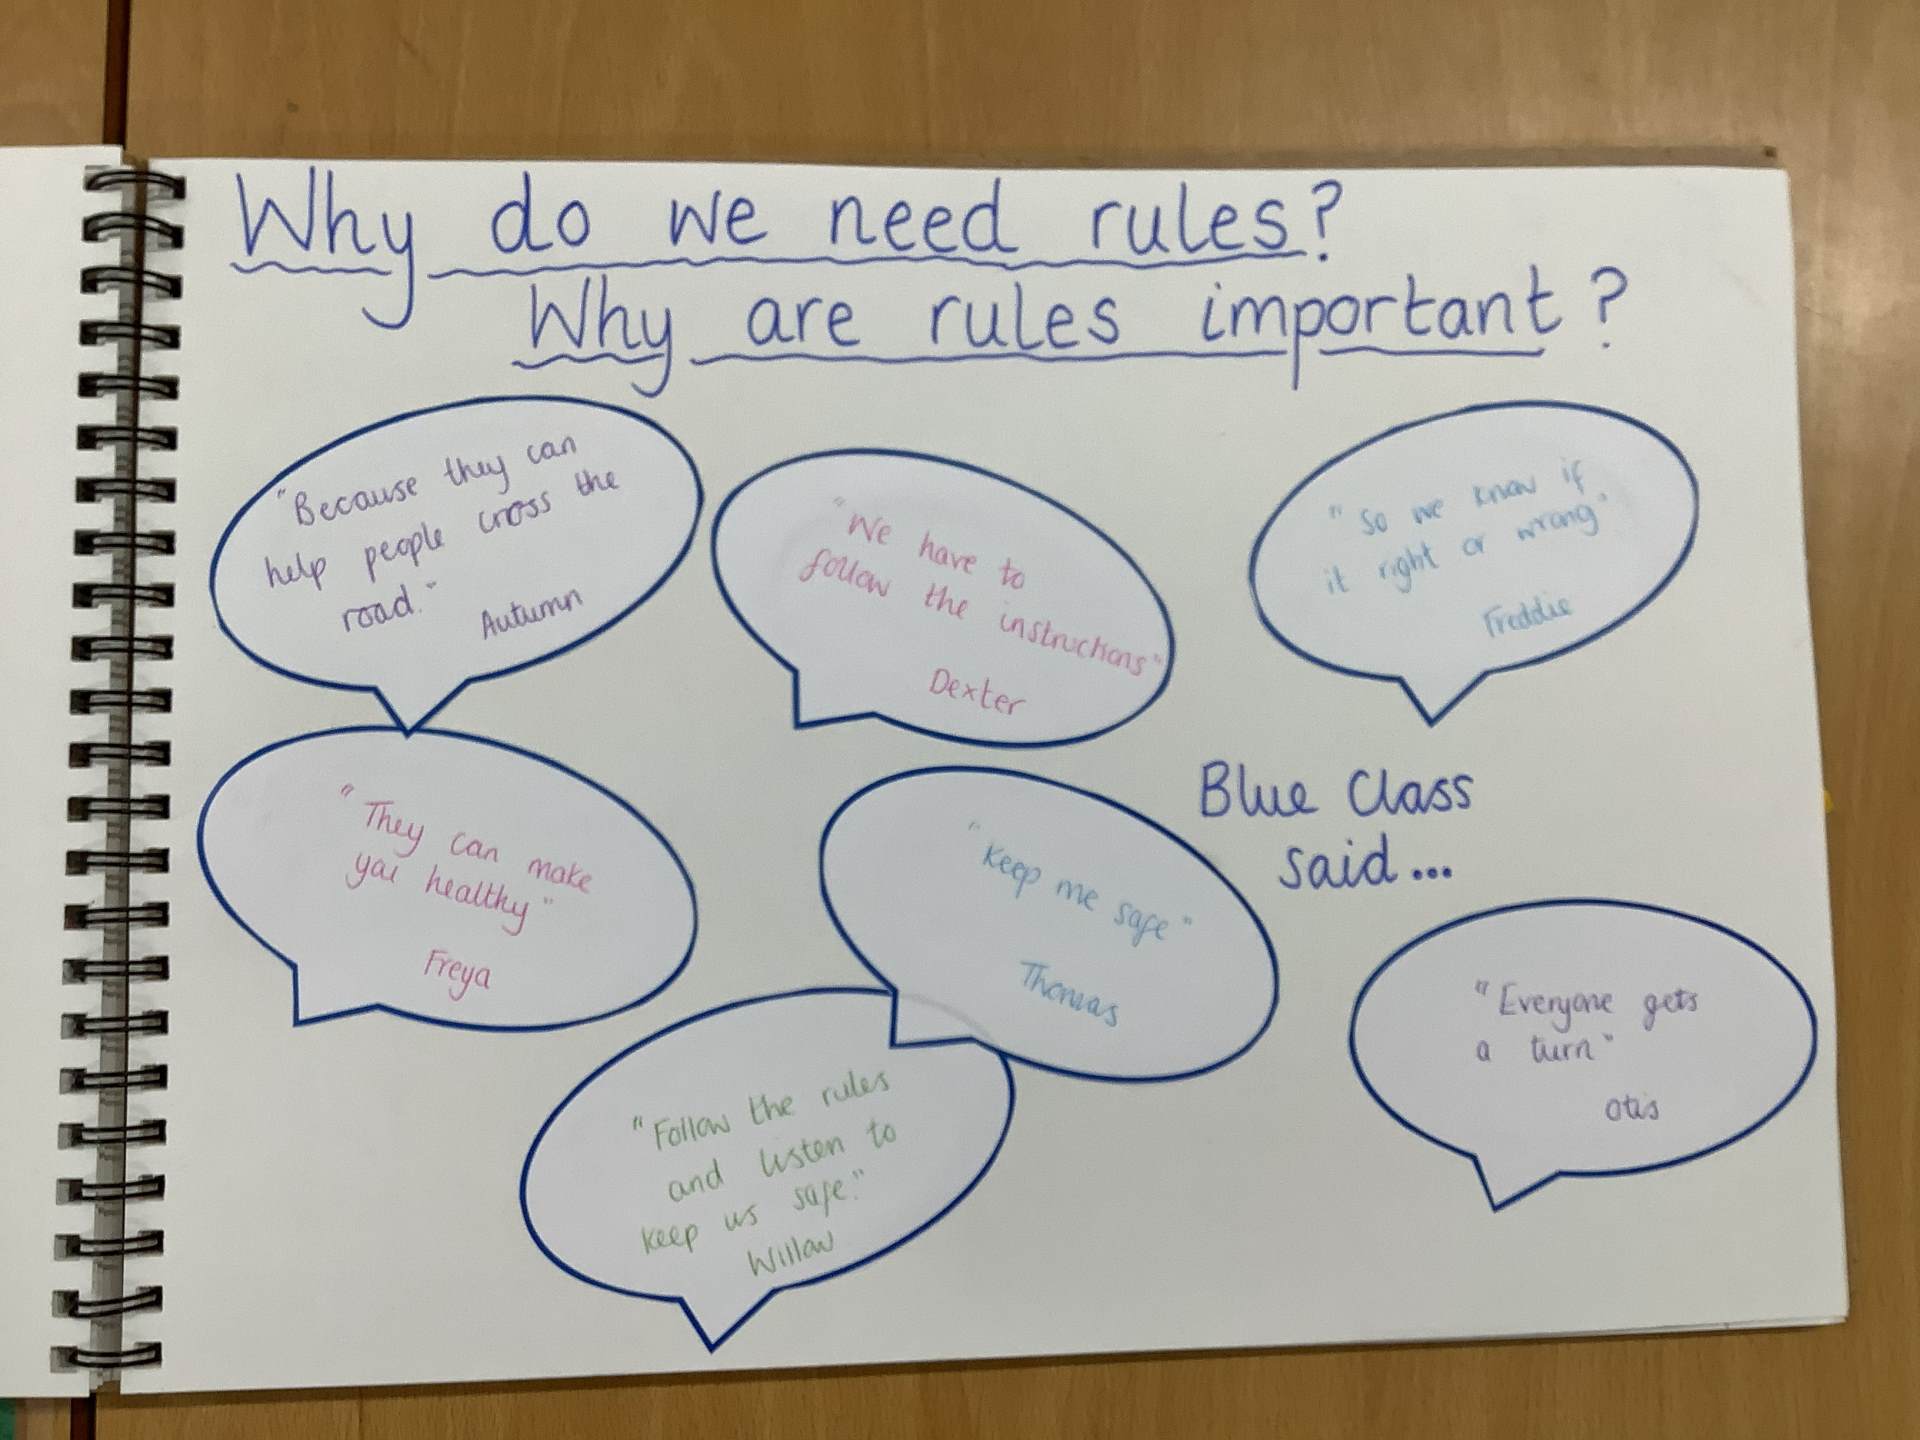 Why do we need rules?
Why are rules important?
"Because they can
help people cross the
road."
Autumn
"We have to
follow the instructions"
Dexter
"So we know if
it right or wrong"
Freddie
"They can make
you healthy"
Freya
"Keep me safe"
Thomas
Blue Class
said...
"Follow the rules
and listen to
keep us safe."
Willow
"Everyone gets
a turn"
Otis